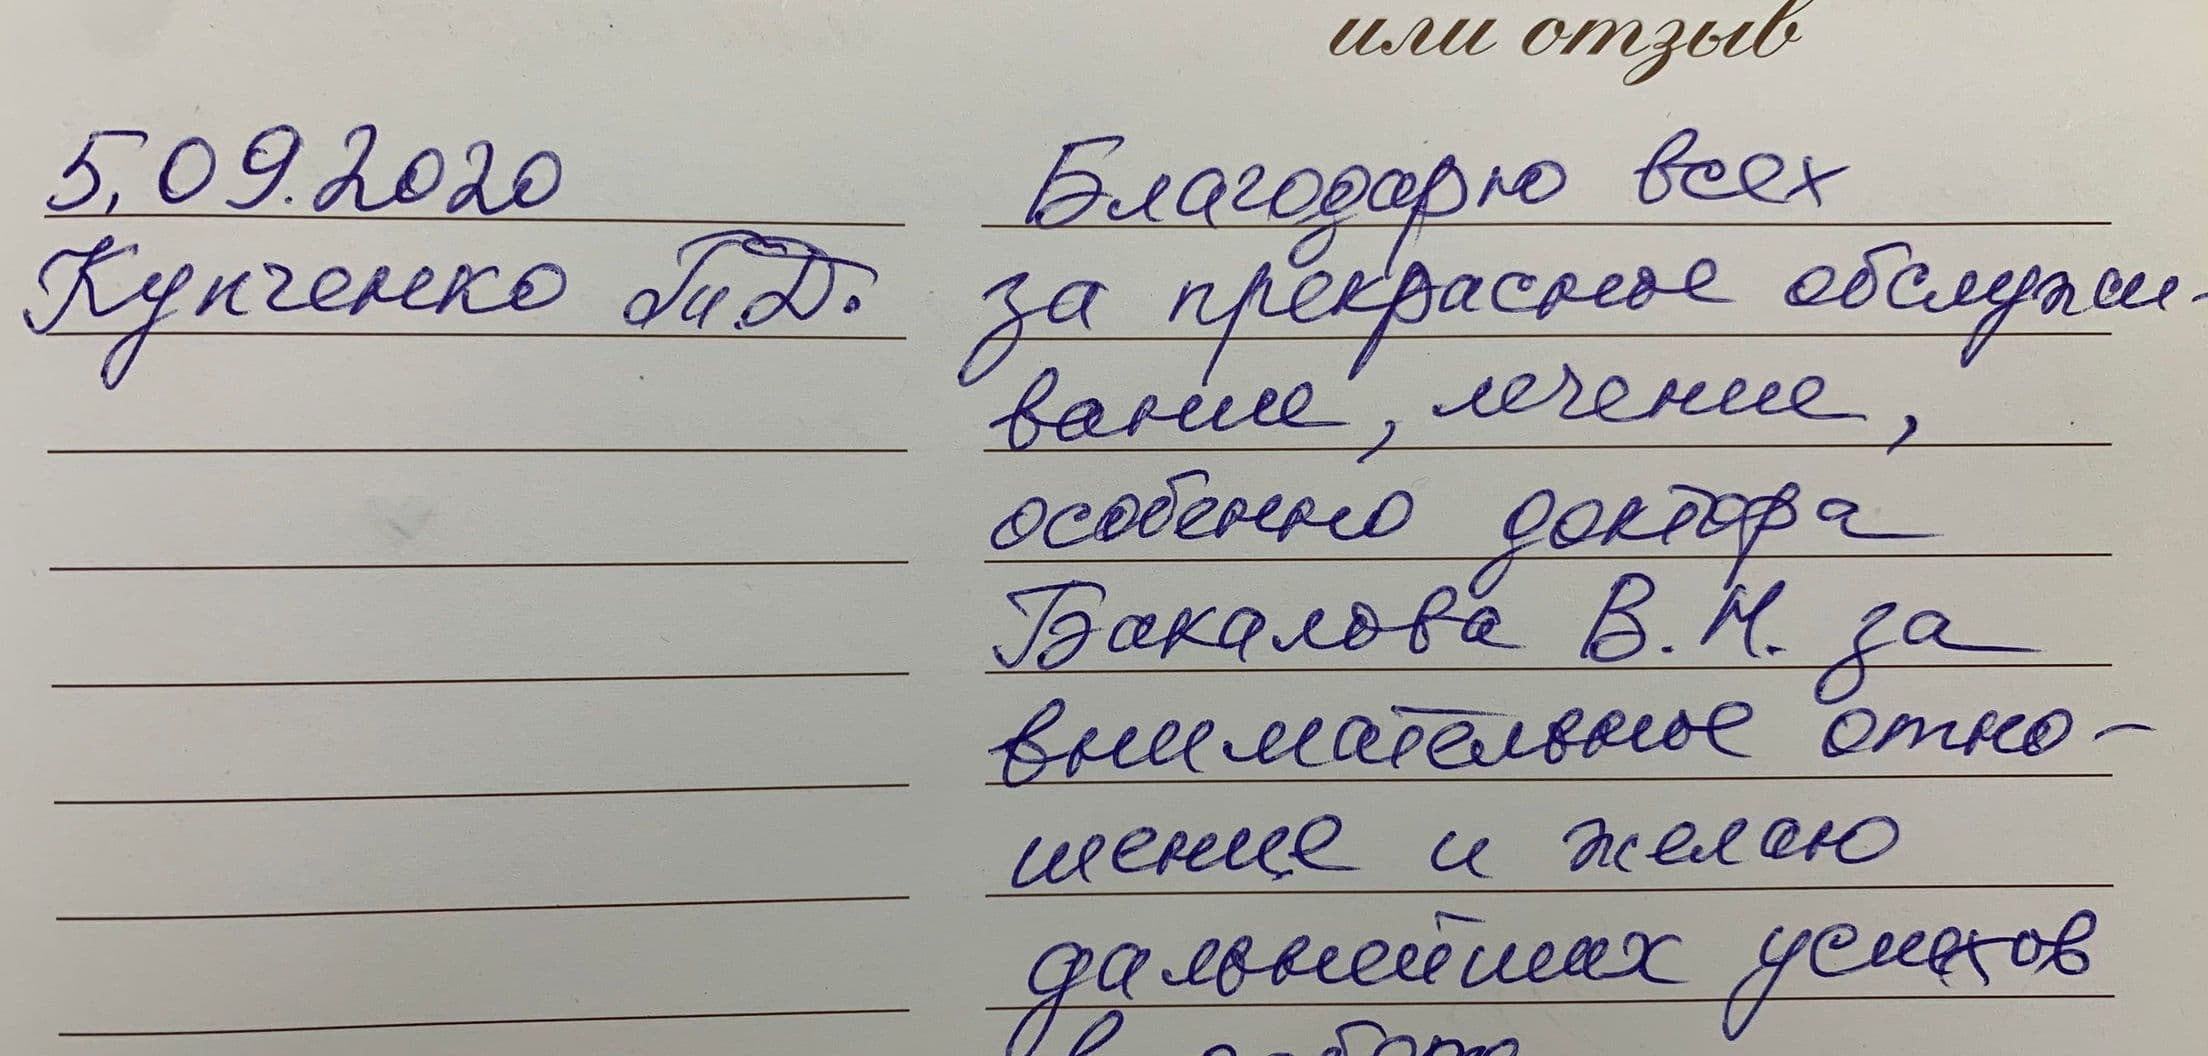 или отзыв
5.09.2020
Купченко Г.Д.
Благодарю всех
за прекрасное обслужи-
вание, лечение,
особенно доктора
Бакалова В.Н. за
внимательное отно-
шение и желаю
дальнейших успехов